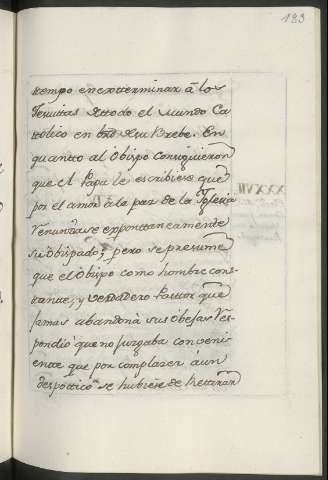 183
tempo en exterminar à los
Jesuitas de todo el mundo Ca
tolico en Breve. En
quanto al Obispo consiguieron
que el Papa le escribiese que
por el amor a la paz de la Iglesia
renunciase expontaneamente
su obispado; pero se presume
que el Obispo como hombre cons
tante, y verdadero Pastor que
jamas abandonà sus obejas res
pondió que no juzgaba conveni
ente que por complazer à un
despotico se hubiese de
XXXVII